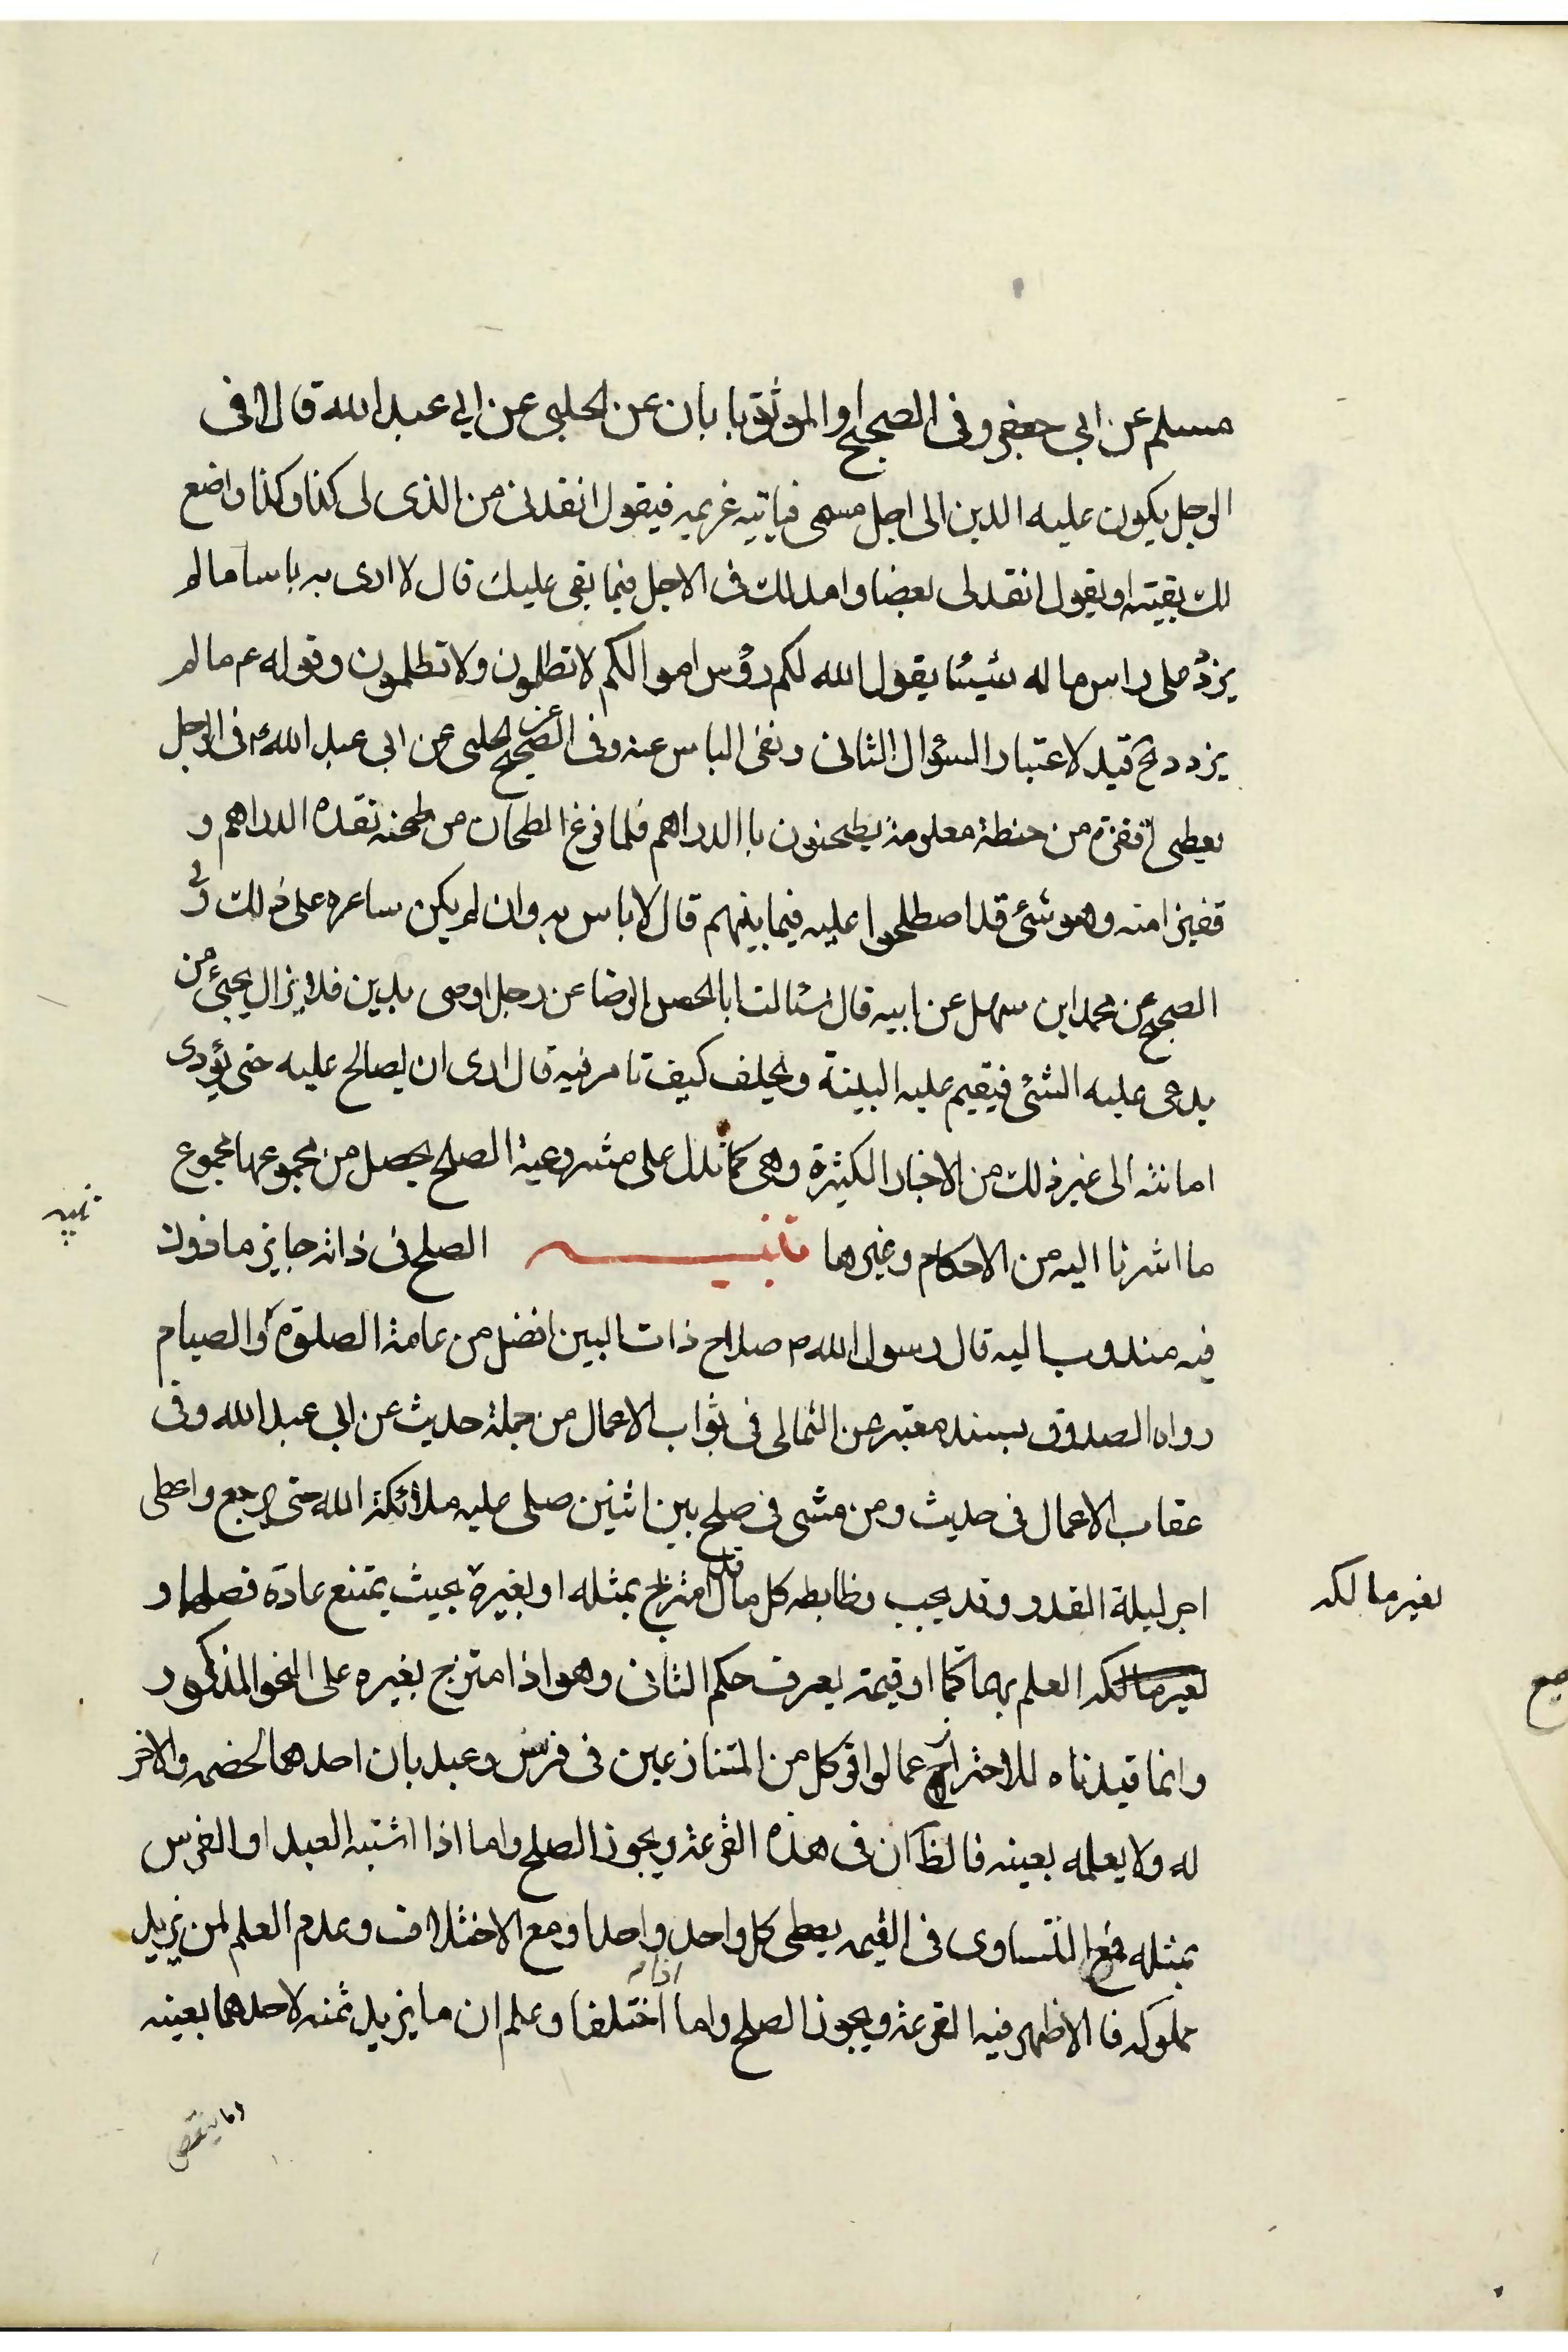 مسلم عن ابى جعفر وفى الصحيح او الموثق بابان عن الحلبى عن ابى عبد الله قال فى
الرجل يكون عليه الدين الى اجل مسمى فياتيه غريمه فيقول انقدنى من الذى لى كذا وكذا واضع
لك بقيته او يقول انقد لى بعضا وامد لك فى الاجل فيما بقى عليك قال لا ارى به باسا ما لم
يزد على راس ماله شيئا يقول الله لكم رؤس اموالكم لا تظلمون ولا تظلمون وقوله ع ما لم
يزدد ح قيد لاعتبار السؤال الثانى ونفى الباس عنه وفى الصحيح عن الحلبى عن ابى عبد الله ع فى الرجل
يعطى اقفزة من حنطة معلومة يطحنون باالدراهم فلما فرغ الطحان من طحنه نقده الدراهم و
قفيزا منه وهو شئ قد اصطلحوا عليه فيما بينهم قال لا باس به وان لم يكن ساعره على ذلك وفى
الصحيح عن محمد ابن سهل عن ابيه قال سئالت ابا الحسن الرضا عن رجل اوصى بدين فلا يزال يجيئ من
يدعى عليه الشئ فيقيم عليه البينة ويحلف كيف تامر فيه قال ارى ان يصالح عليه حتى يؤدى
امانته الى غير ذلك من الاخبار الكثيرة وهى كما تدل على مشروعية الصلح يحصل من مجموعها مجموع
ما اشرنا اليه من الاحكام وغيرها تنبيه الصلح فى ذاته جايز ماذون
تنبيه
فيه مندوب اليه قال رسول الله ص صلاح ذات البين افضل من عامة الصلوة والصيام
رواه الصدوق بسند معتبر عن الثمالى فى ثواب الاعمال من جملة حديث عن ابى عبد الله وفى
عقاب الاعمال فى حديث ومن مشى فى صلح بين اثنين صلى عليه ملائكة الله حتى يرجع واعطى
اجر ليلة القدر وقد يجب وظابطه كل مال قد امتزج بمثله او بغيره بحيث يمتنع عادة فصلهما و
لغير مالكه
لغير مالكه العلم بهما كما او قيمة يعرف حكم الثانى وهو اذا متزج بغيره على النحو المذكور
وانما قيدناه للاحتراج عما لو اقر كل من المتنازعين فى فرس وعبد بان احدهما لخصمه والاخر
له ولا يعلمه بعينه فالظ ان فى هذه القرعة ويجوز الصلح واما اذا اشتبه العبد او الفرس
بمثله فمع التساوى فى القيمه يعطى كل واحد واحدا ومع الاختلاف وعدم العلم لمن يزيد
مملوكه فا الاظهر فيه القرعة ويجوز الصلح واما اذا اختلفا وعلم ان ما يزيد ثمنه لاحدهما بعينه